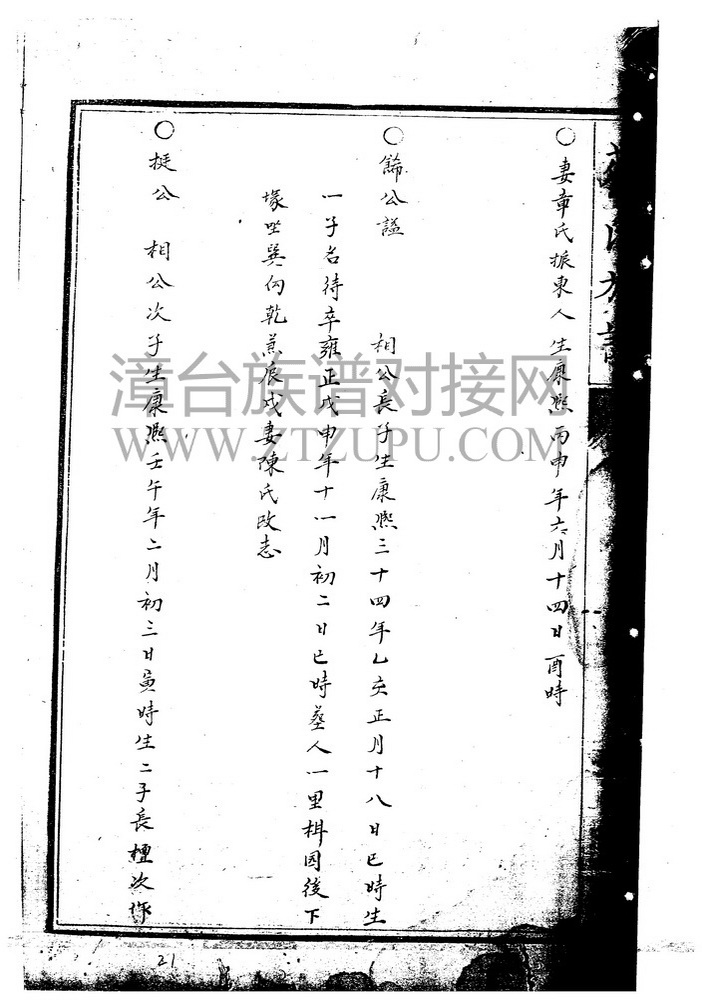 ○妻章氏振東人生康熙丙申年六月十四日酉時
○公諡 相公長子生康熙三十四年乙亥正月十八日巳時生
一子名待卒雍正戊申年十一月初二日巳時墓人一里柑园後下
塚坐巽向乾兼辰戌妻陳氏改志
○挺公 相公次子生康熙壬午年二月初三日寅時生二子長檀次
漳台族谱对接网
WWW.ZTZUPU.COM
21